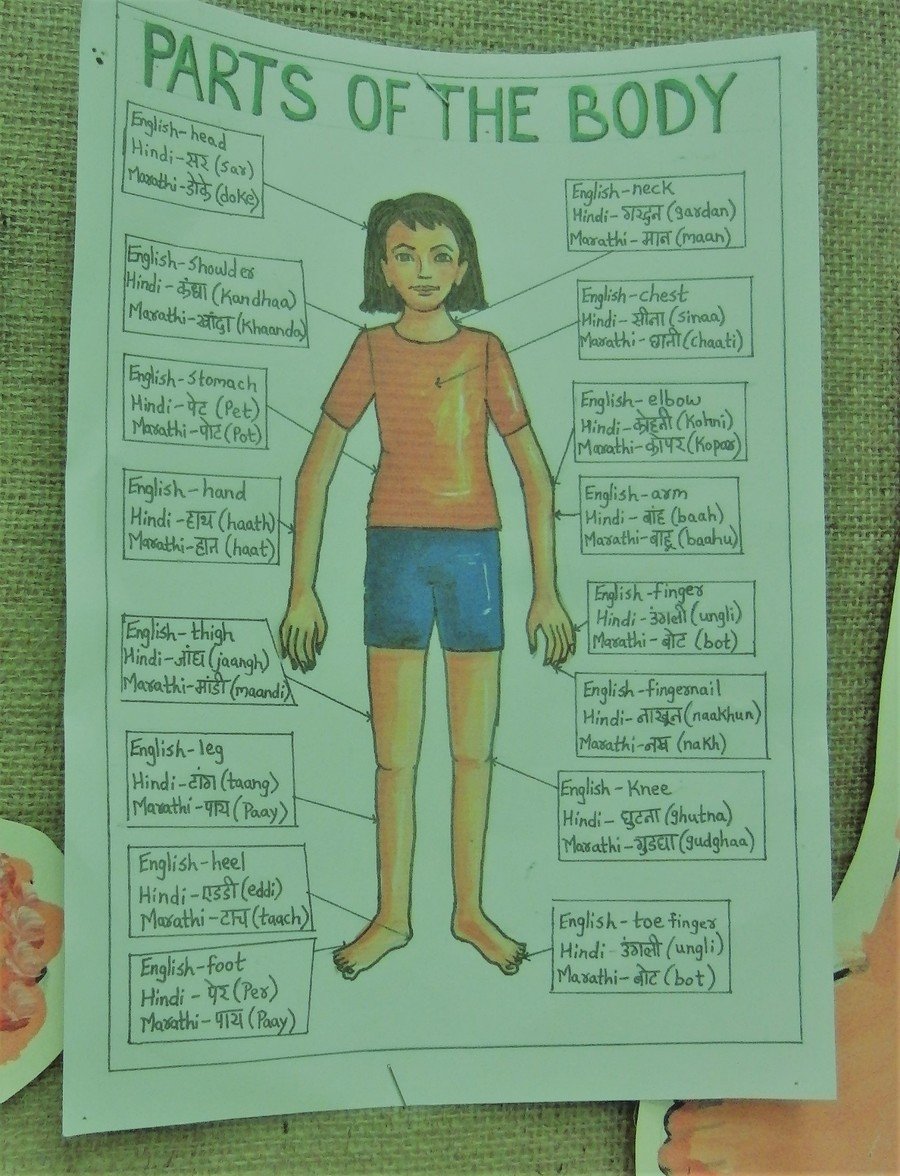 PARTS OF THE BODY
English-head
Hindi-सर (sar)
Marathi-डोके (doke)
English-shoulder
Hindi-कंधा (Kandhaa)
Marathi-खांदा (Khaanda)
English-stomach
Hindi-पेट (Pet)
Marathi-पोट (Pot)
English-hand
Hindi-हाथ (haath)
Marathi-हात (haat)
English-thigh
Hindi-जांघ (jaangh)
Marathi-मांडी (maandi)
English-leg
Hindi-टांग (taang)
Marathi-पाय (Paay)
English-heel
Hindi-एडडी (eddi)
Marathi-टाच (taach)
English-foot
Hindi-पेर (Per)
Marathi-पाय (Paay)
English-neck
Hindi-गरदन (gardan)
Marathi-मान (maan)
English-chest
Hindi-सीना (sinaa)
Marathi-छाती (chaati)
English-elbow
Hindi-कोहनी (Kohni)
Marathi-कोपर (Kopar)
English-arm
Hindi-बांह (baah)
Marathi-बाहू (baahu)
English-finger
Hindi-उंगली (ungli)
Marathi-बोट (bot)
English-fingernail
Hindi-नाखून (naakhun)
Marathi-नख (nakh)
English-Knee
Hindi-घुटना (ghutna)
Marathi-गुडघा (gudghaa)
English-toe finger
Hindi-उंगली (ungli)
Marathi-बोट (bot)